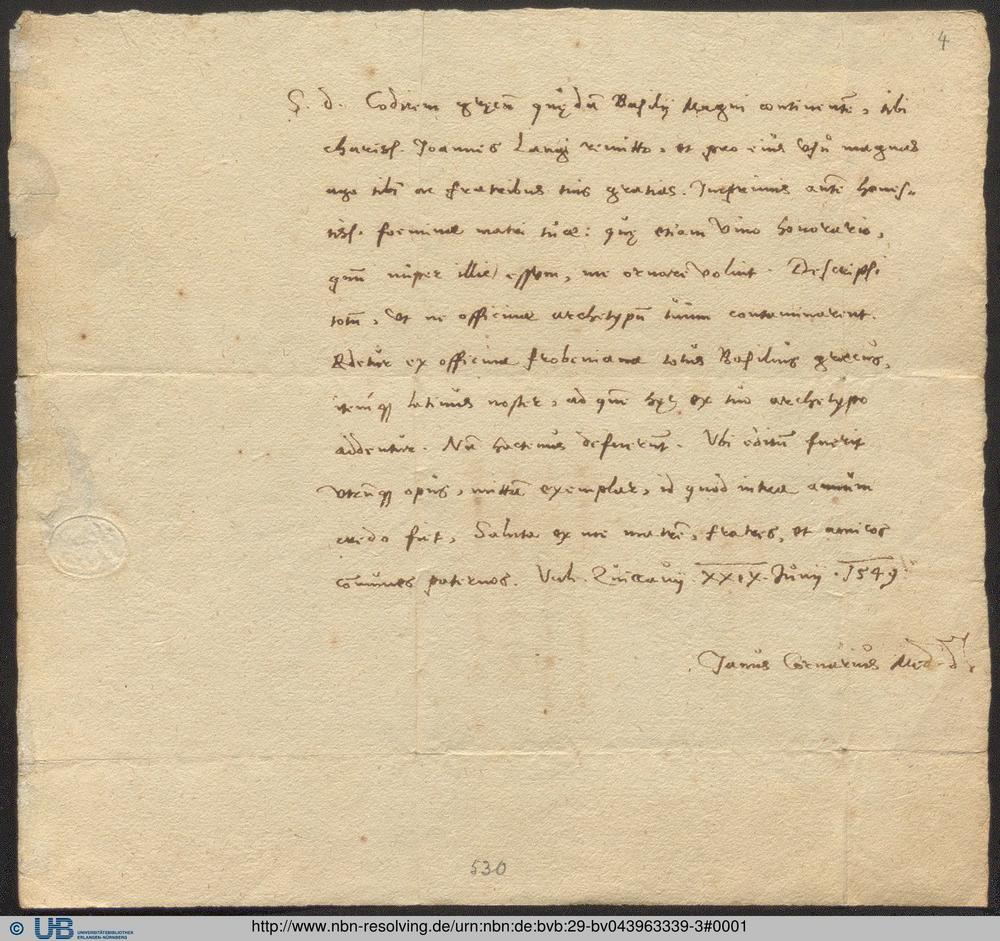 4
S. d. Codicem gręcū quędā Basilij Magni continentē, tibi
chariss. Joannes Langi remitto, et pro eius vsu magnas
ago tibi ac fratribus tuis gratias. Inprimis autē hones-
tiss. foeminae matri tuae: quę etiam vino honorario,
quū nuper illic essem, me ornare voluit. Descripsi
totū, vt ne officinae archetypū tuum contaminarent.
Edetur ex officina frobeniana totus Basilius graecus,
itemq latinus noster, ad quē hęc ex tuo archetypo
addentur. Nā hactenus defuerūt. Vbi editū fuerit
vtrūq opus, mittā exemplar, id quod intra annum
credo fiet. Saluta ex me matrē, fratres, et amicos
cōmunes paternos. Vale. Zuiccauij XXIX. Junij. 1549
Janus Cornarius Med. d.
530
© UB UNIVERSITÄTSBIBLIOTHEK ERLANGEN-NÜRNBERG
http://www.nbn-resolving.de/urn:nbn:de:bvb:29-bv043963339-3#0001